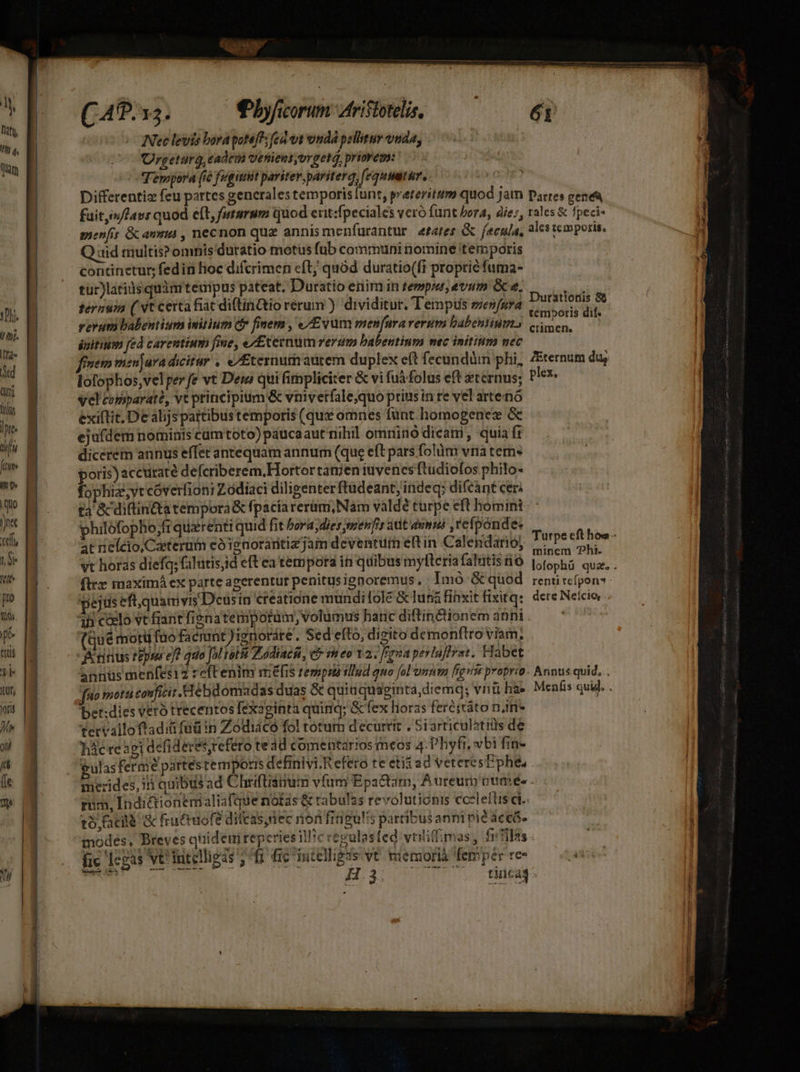 CAP. 13. Phyſicorum Ariſtotelis. 61
Nec levis hora poteſt; ſed vt vndâ pellitur vnda,
Urgeturq, eadem veniens, vrgetq, priorem:
Tempora ſic fugiunt pariter, pariterq, ſequuntur.
Differentiæ ſeu partes generales temporis ſunt, præteritum quod jam
fuit, inſtans quod eſt, futurum quod erit: ſpeciales verò ſunt hora, dies,
menſis & annus, necnon quæ annis menſurantur ætates & ſæcula,
Quid multis? omnis duratio motus ſub communi nomine temporis
continetur; ſed in hoc diſcrimen eſt, quòd duratio (ſi propriè ſuma-
tur) latiùs quàm tempus pateat. Duratio enim in tempus, ævum & æ-
ternum ( vt certa fiat diſtinctio rerum ) dividitur. Tempus menſura
rerum habentium initium & finem, Ævum menſura rerum habentium
initium ſed carentium fine, Æternum rerum habentium nec initium nec
finem menſura dicitur. Æternum autem duplex eſt ſecundùm phi-
loſophos, vel per ſe vt Deus qui ſimpliciter & vi ſuâ ſolus eſt æternus;
vel comparatè, vt principium & vniverſale, quo prius in re vel arte nō
exiſtit. De alijs partibus temporis (quæ omnes ſunt homogeneæ &
ejuſdem nominis cum toto) pauca aut nihil omninò dicam, quia ſi
dicerem annus eſſet antequam annum (que eſt pars ſolùm vna tem-
poris) accuratè deſcriberem. Hortor tamen iuvenes ſtudioſos philo-
ſophiæ, vt cōverſioni Zodiaci diligenter ſtudeant, indeq; diſcant cer-
ta & diſtincta tempora & ſpacia rerum, Nam valdè turpe eſt homini
philoſopho, ſi quærenti quid ſit hora, dies, menſis aut annus, reſponde-
at neſcio, Cæterum eò ignorantiæ jam deventum eſt in Calendario,
vt horas dieſq; ſalutis, id eſt ea tempora in quibus myſteria ſalutis nō
ſtræ maximâ ex parte agerentur penitus ignoremus. Imò & quod
pejus eſt, quamvis Deus in creatione mundi ſolē & lunā finxit fixitq;
in cœlo vt fiant ſigna temporum, volumus hanc diſtinctionem anni
(quē motū ſuo faciunt) ignorare. Sed eſto, digito demonſtro viam;
Annus tēpus eſt quo ſol totū Zodiacū, & in eo 12. ſigna perluſtrat. Habet
annus menſes 12 : eſt enim mēſis tempus illud quo ſol vnum ſignū proprio
ſuo motu conficit. Hebdomadas duas & quinquaginta, diemq; vnū ha-
bet: dies verò trecentos ſexaginta quinq; & ſex horas ferè; tāto n. in-
tervallo ſtadiū ſuū in Zodiaco ſol totum decurrit. Si articulatiùs de
hâc re agi deſideres, refero te ad comentarios meos 4. Phyſi, vbi ſin-
gulas fermè partes temporis definivi. Referò te etiā ad veteres Ephe-
merides, in quibus ad Chriſtianum vſum Epactam, Aureum nume-
rum, Indictionem aliaſque notas & tabulas revolutionis cœleſtis ci-
tò, facilè & fructuoſè diſcas, nec non ſingulis partibus anni piè accō-
modes. Breves quidem reperies illîc regulas ſed vtiliſſimas, ſi illas
ſic legas vt intelligas; ſi ſic intelligas vt memoriâ ſemper re-
H 3 tineas
Partes gene-
rales & ſpeci-
ales temporis.
Durationis &
temporis diſ-
crimen.
Æternum du-
plex.
Turpe eſt ho-
minem Phi-
loſophū quæ-
renti reſpon-
dere Neſcio,
Annus quid.
Menſis quid.